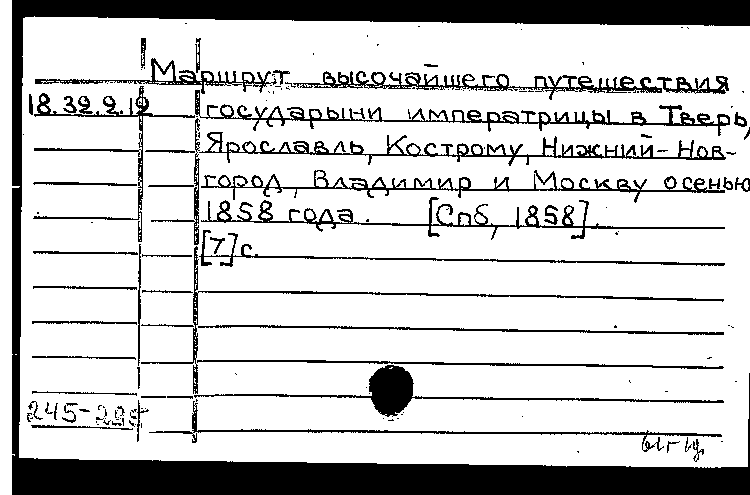 Маршрут высочайшего путешествия
18.39.9.19 государыни императрицы в Тверь,
Ярославль, Кострому, Нижний-Нов-
город, Владимир и Москву осенью
1858 года. [Спб, 1858].
[7] с.
245-295